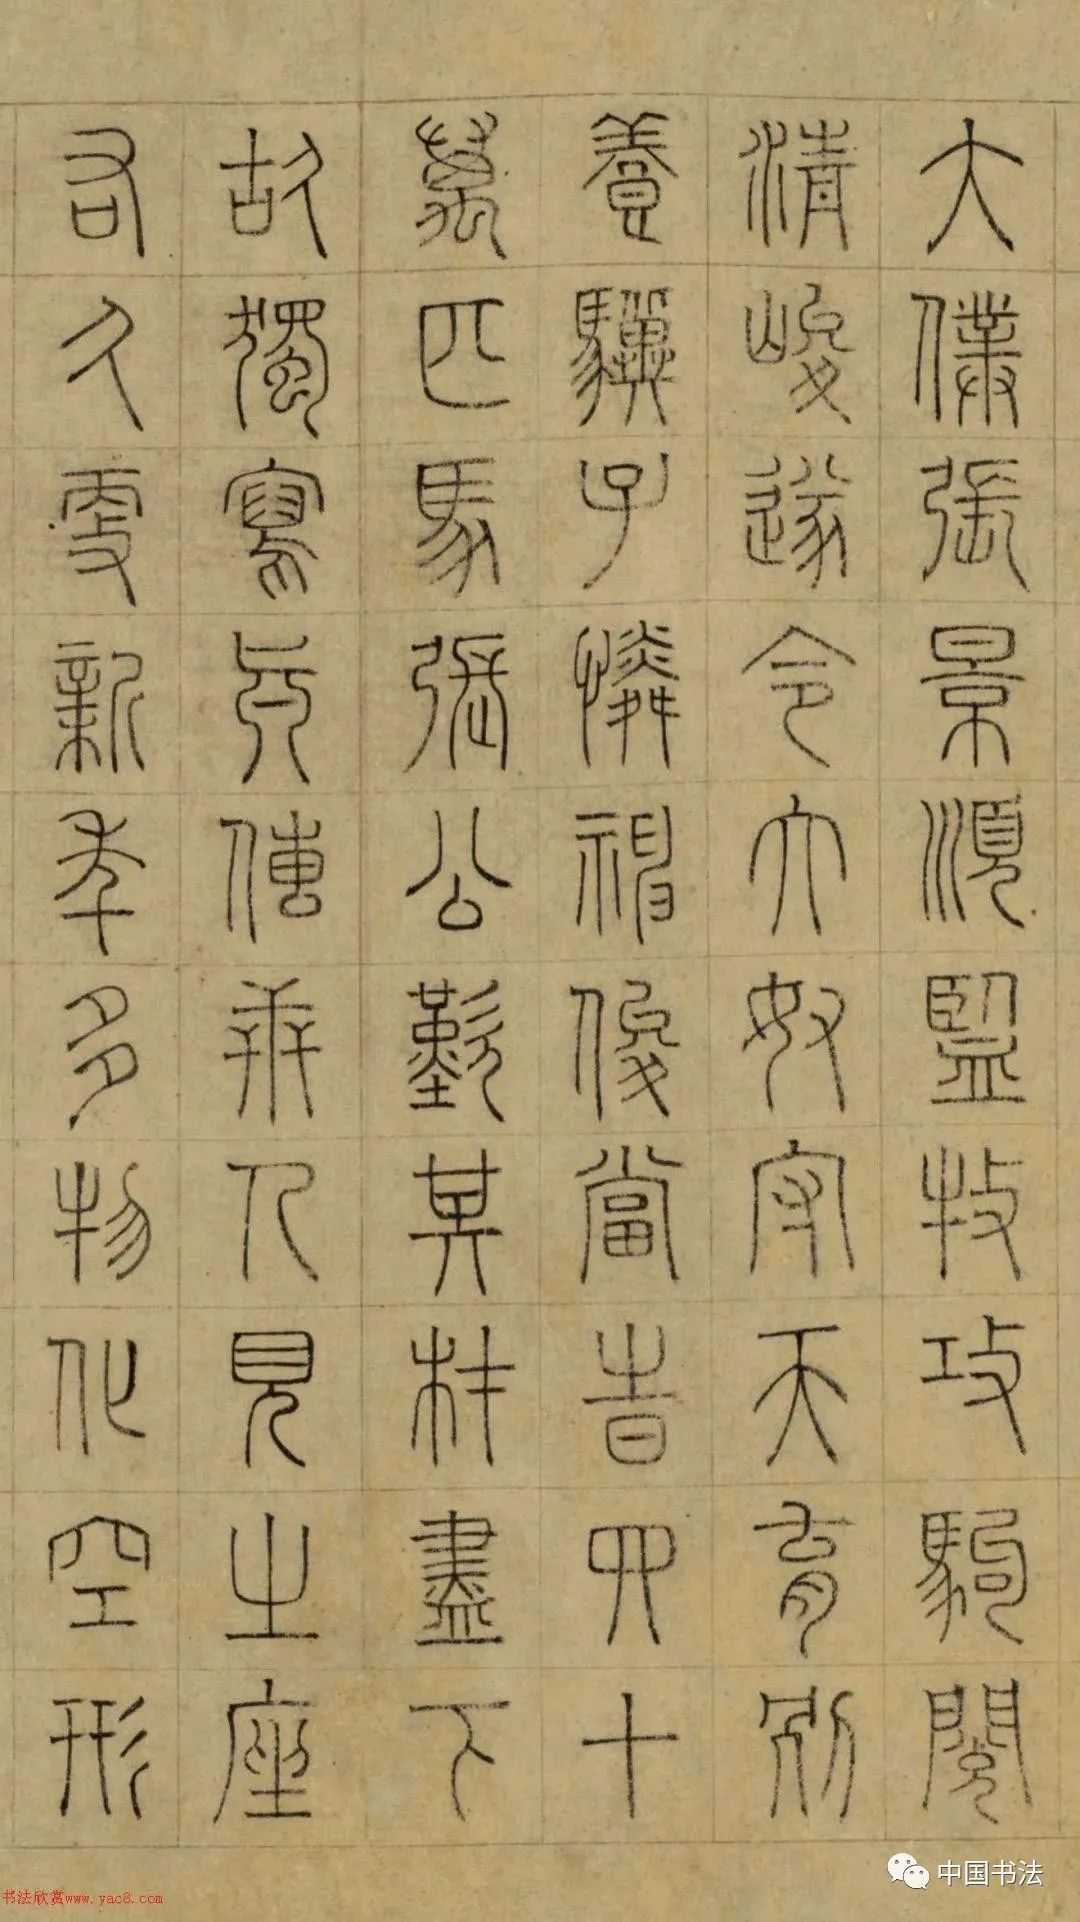 大僕張景順監牧攻駒閱
清峻遂令大奴守天育別
養驥子憐神俊當時四十
萬匹馬張公歎其材盡下
故獨寫真傳世人見之座
右久更新年多物化空形
中国书法
书法欣赏www.yac8.com